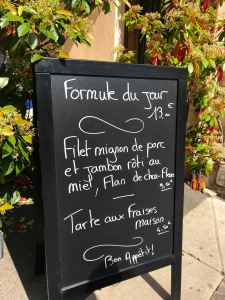 Formule du Jour
13.€
Filet mignon de porc
et jambon rôti au
miel, Flan de chou-fleur
Tarte aux Fraises
maison
Bon Appétit!